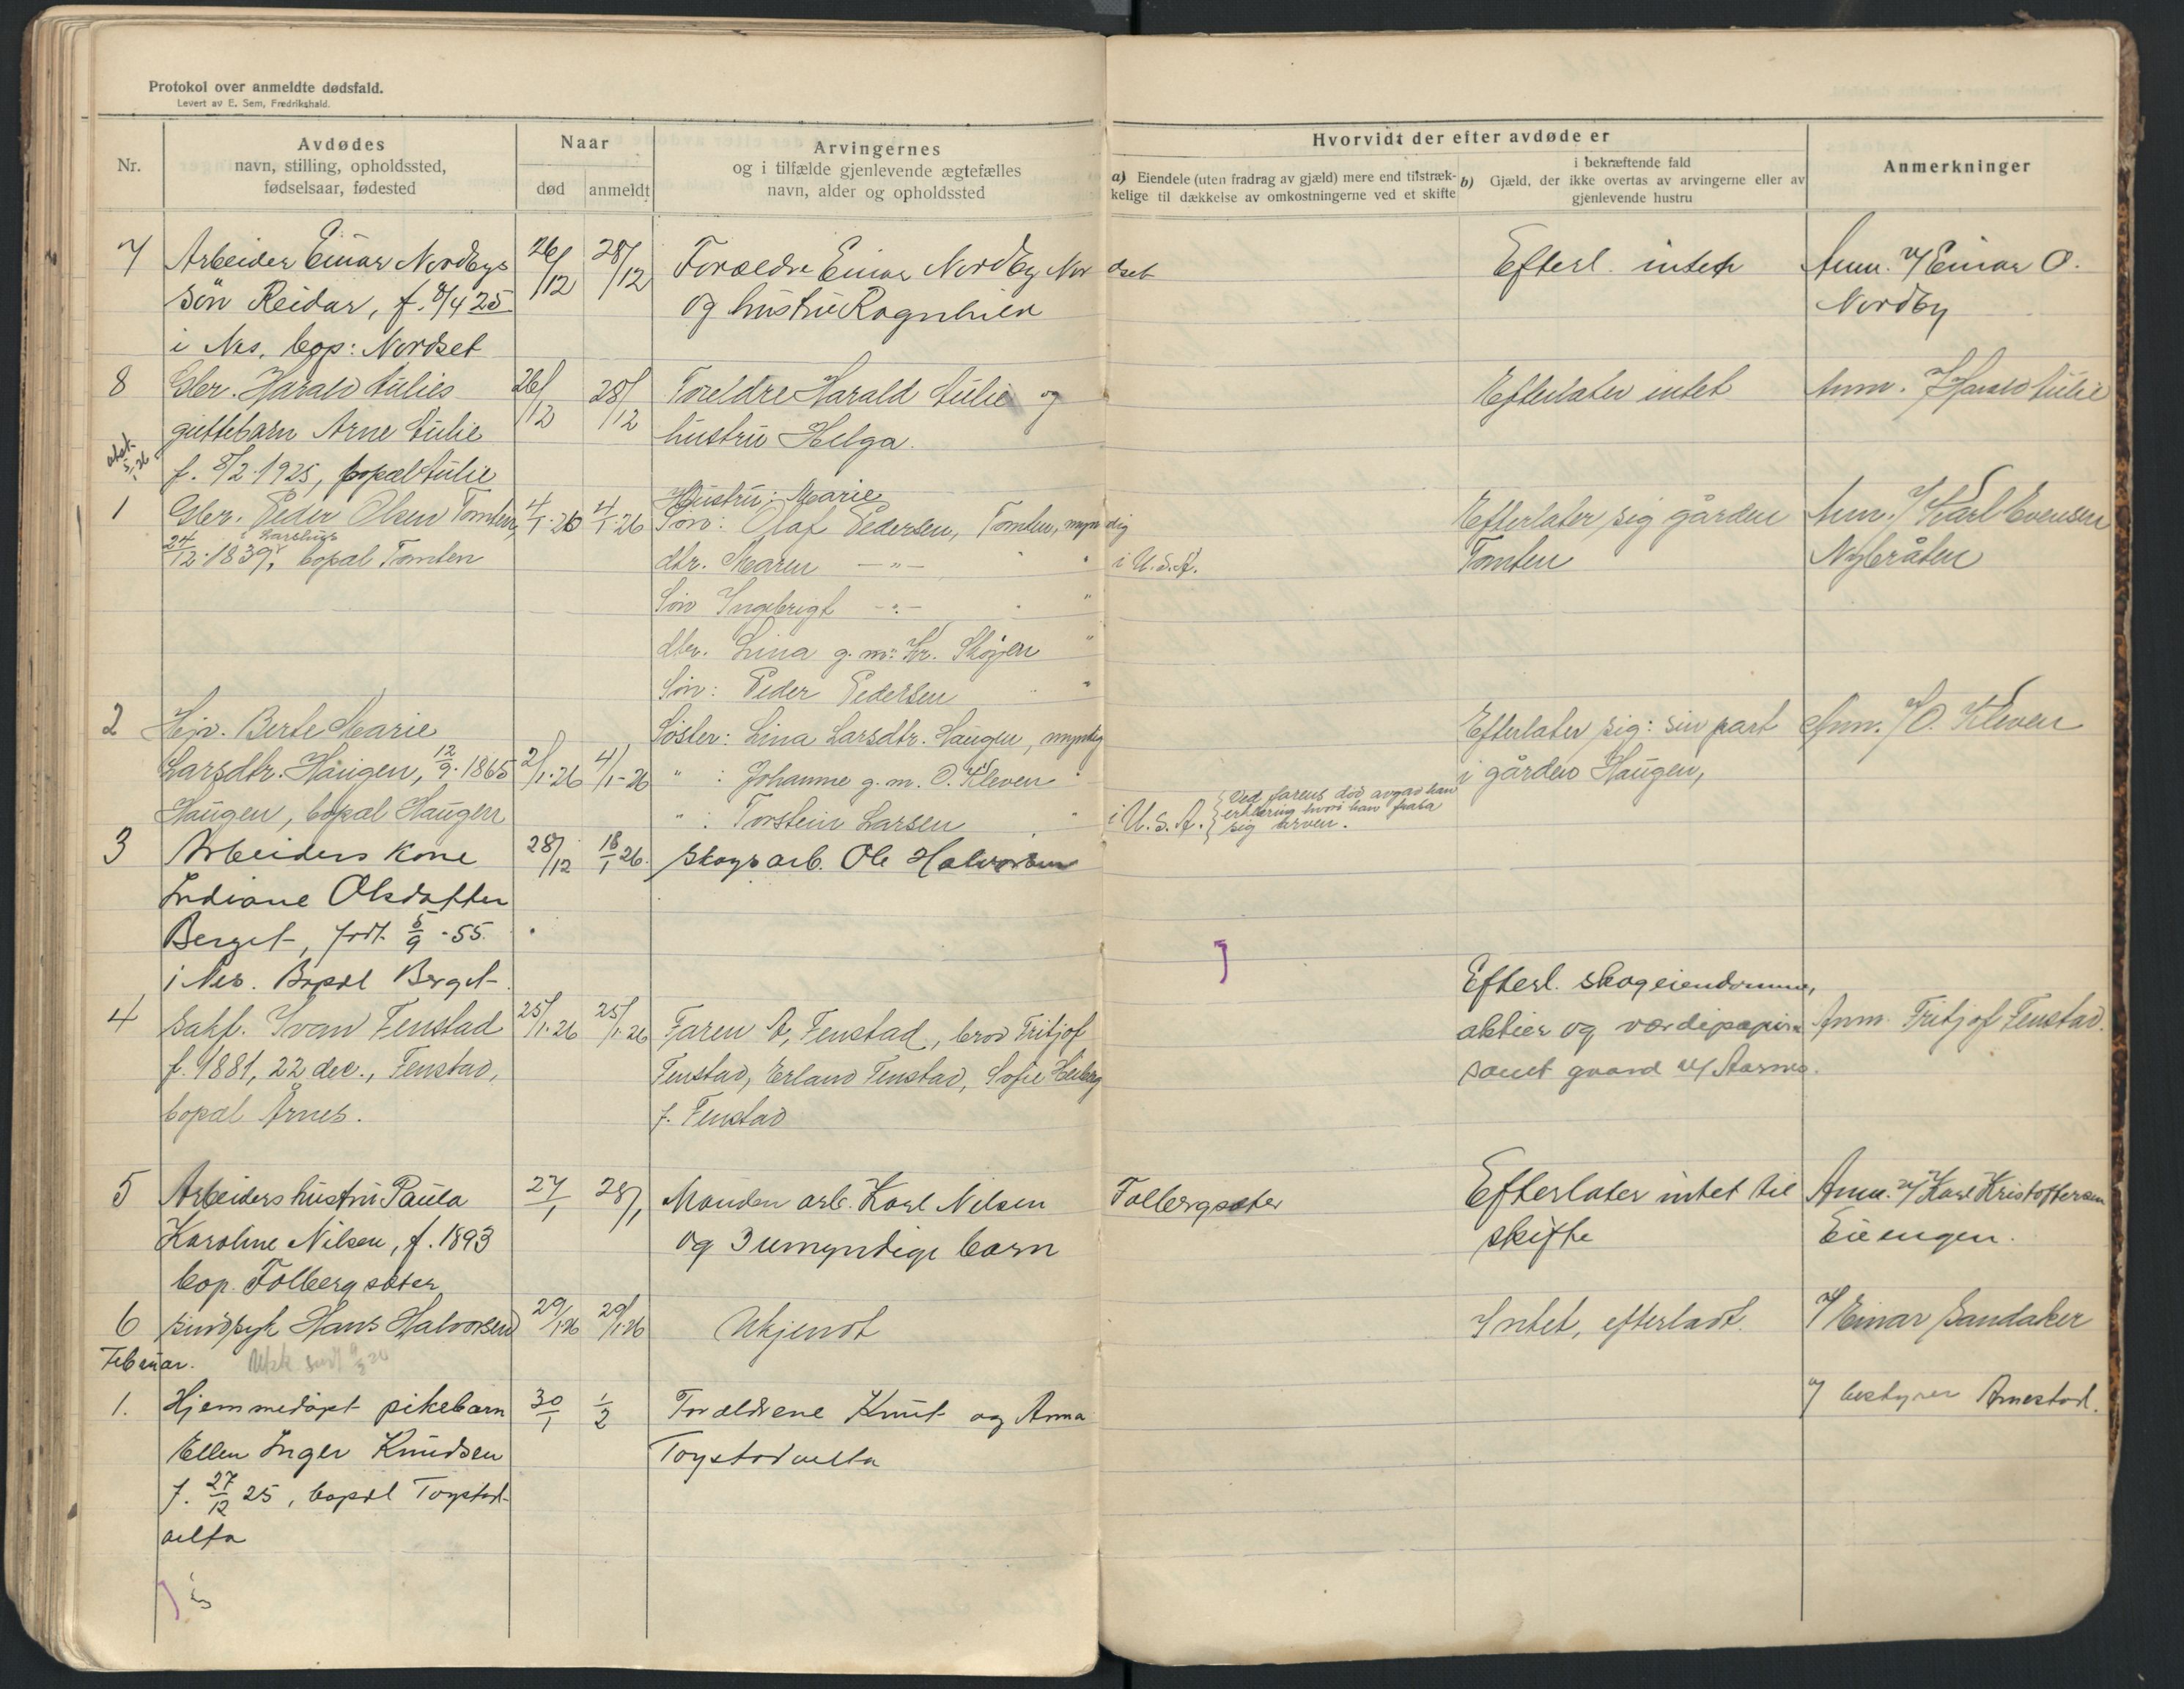 Protokol over anmeldte dødsfald.
Levert av E. Sem, Fredrikshald.
Nr.
Avdødes
navn, stilling, opholdssted,
fødselsaar, fødested
Naar
død
anmeldt
Arvingernes
og i tilfælde gjenlevende ægtefælles
navn, alder og opholdssted
Hvorvidt der efter avdøde er
a) Eiendele (uten fradrag av gjæld) mere end tilstræk-
kelige til dækkelse av omkostningerne ved et skifte
i bekræftende fald
b) Gjæld, der ikke overtas av arvingerne eller av
gjenlevende hustru
Anmerkninger
7 Arbeider Einar Nordbys 26/12 28/12 Forældre Einar Nordby Nordset Efterl. intet Anm. v/ Einar O.
søn Reidar, f. 8/4 25 og hustru Ragnhild Nordby
i Nes, bop: Nordset
8 Gbr. Harald Aulies 26/12 28/12 Foreldre Harald Aulie og Efterlater intet Anm. v/ Harald Aulie
guttebarn Arne Aulie hustru Helga.
f. 8/2-1925, bopæl Aulie
Hustru: Marie
1 Gbr. Peder Olsen Tomten, 4/1-26 4/1-26 Søn: Olaf Pedersen, Tomten, myndig Efterlater sig gården Anm. v/ Karl Evensen
24/12-1839, bopæl Tomten dtr. Maren -"- " i U.S.A. Tomten Nybråten
Søn Ingebrigt -"- " "
dtr. Lina g. m. Kr. Skøyen "
Søn: Peder Pedersen " "
2 Hjv. Berte Marie Søster: Lina Larsdtr. Haugen, myndig Efterlater sig: sin part Anm. v/ O. Kleven
Larsdtr. Haugen, 12/9-1865 2/1-26 4/1-26 " : Johanne g. m. O. Kleven " i gården Haugen,
Haugen, bopæl Haugen " : Torstein Larsen " i U.S.A. { Ved farens død avgav han
erklæring hvori han frasa
sig arven.
3 Arbeiders kone 28/12 18/1 26. Skogsarb. Ole Halvorsen
Indiane Olsdatter
Berget, født 5/9-55.
i Nes. Bopæl Berget
Efterl. skogeiendommer,
4 Sakf. Ivan Fenstad 25/1-26 25/1-26 Faren A. Fenstad, bror Fritjof aktier og værdipapirer Anm. Fritjof Fenstad.
f. 1881, 22 dec., Fenstad, Fenstad, Erland Fenstad, Sofie Heiberg samt gaard v/ Aarnes.
bopæl Årnes. f. Fenstad
5 Arbeiders hustru Paula 27/1 28/1 Manden arb. Karl Nilsen Folbergsæter Efterlater intet til Anm. v/ Karl Kristoffersen
Karoline Nilsen, f. 1893 og 3 umyndige barn skifte Euengen.
bop. Folbergsæter
6 sindsyk Hans Halvorsen 29/1-26 29/1-26 Ukjendt Intet, efterladt. v/ Einar Sandaker
Februar.
1. Hjemmedøpt pikebarn 30/1 1/2 Forældrene Knut og Anna v/ bestyrer Arnestad.
Ellen Inger Knudsen
f. 27/12 25, bopæl